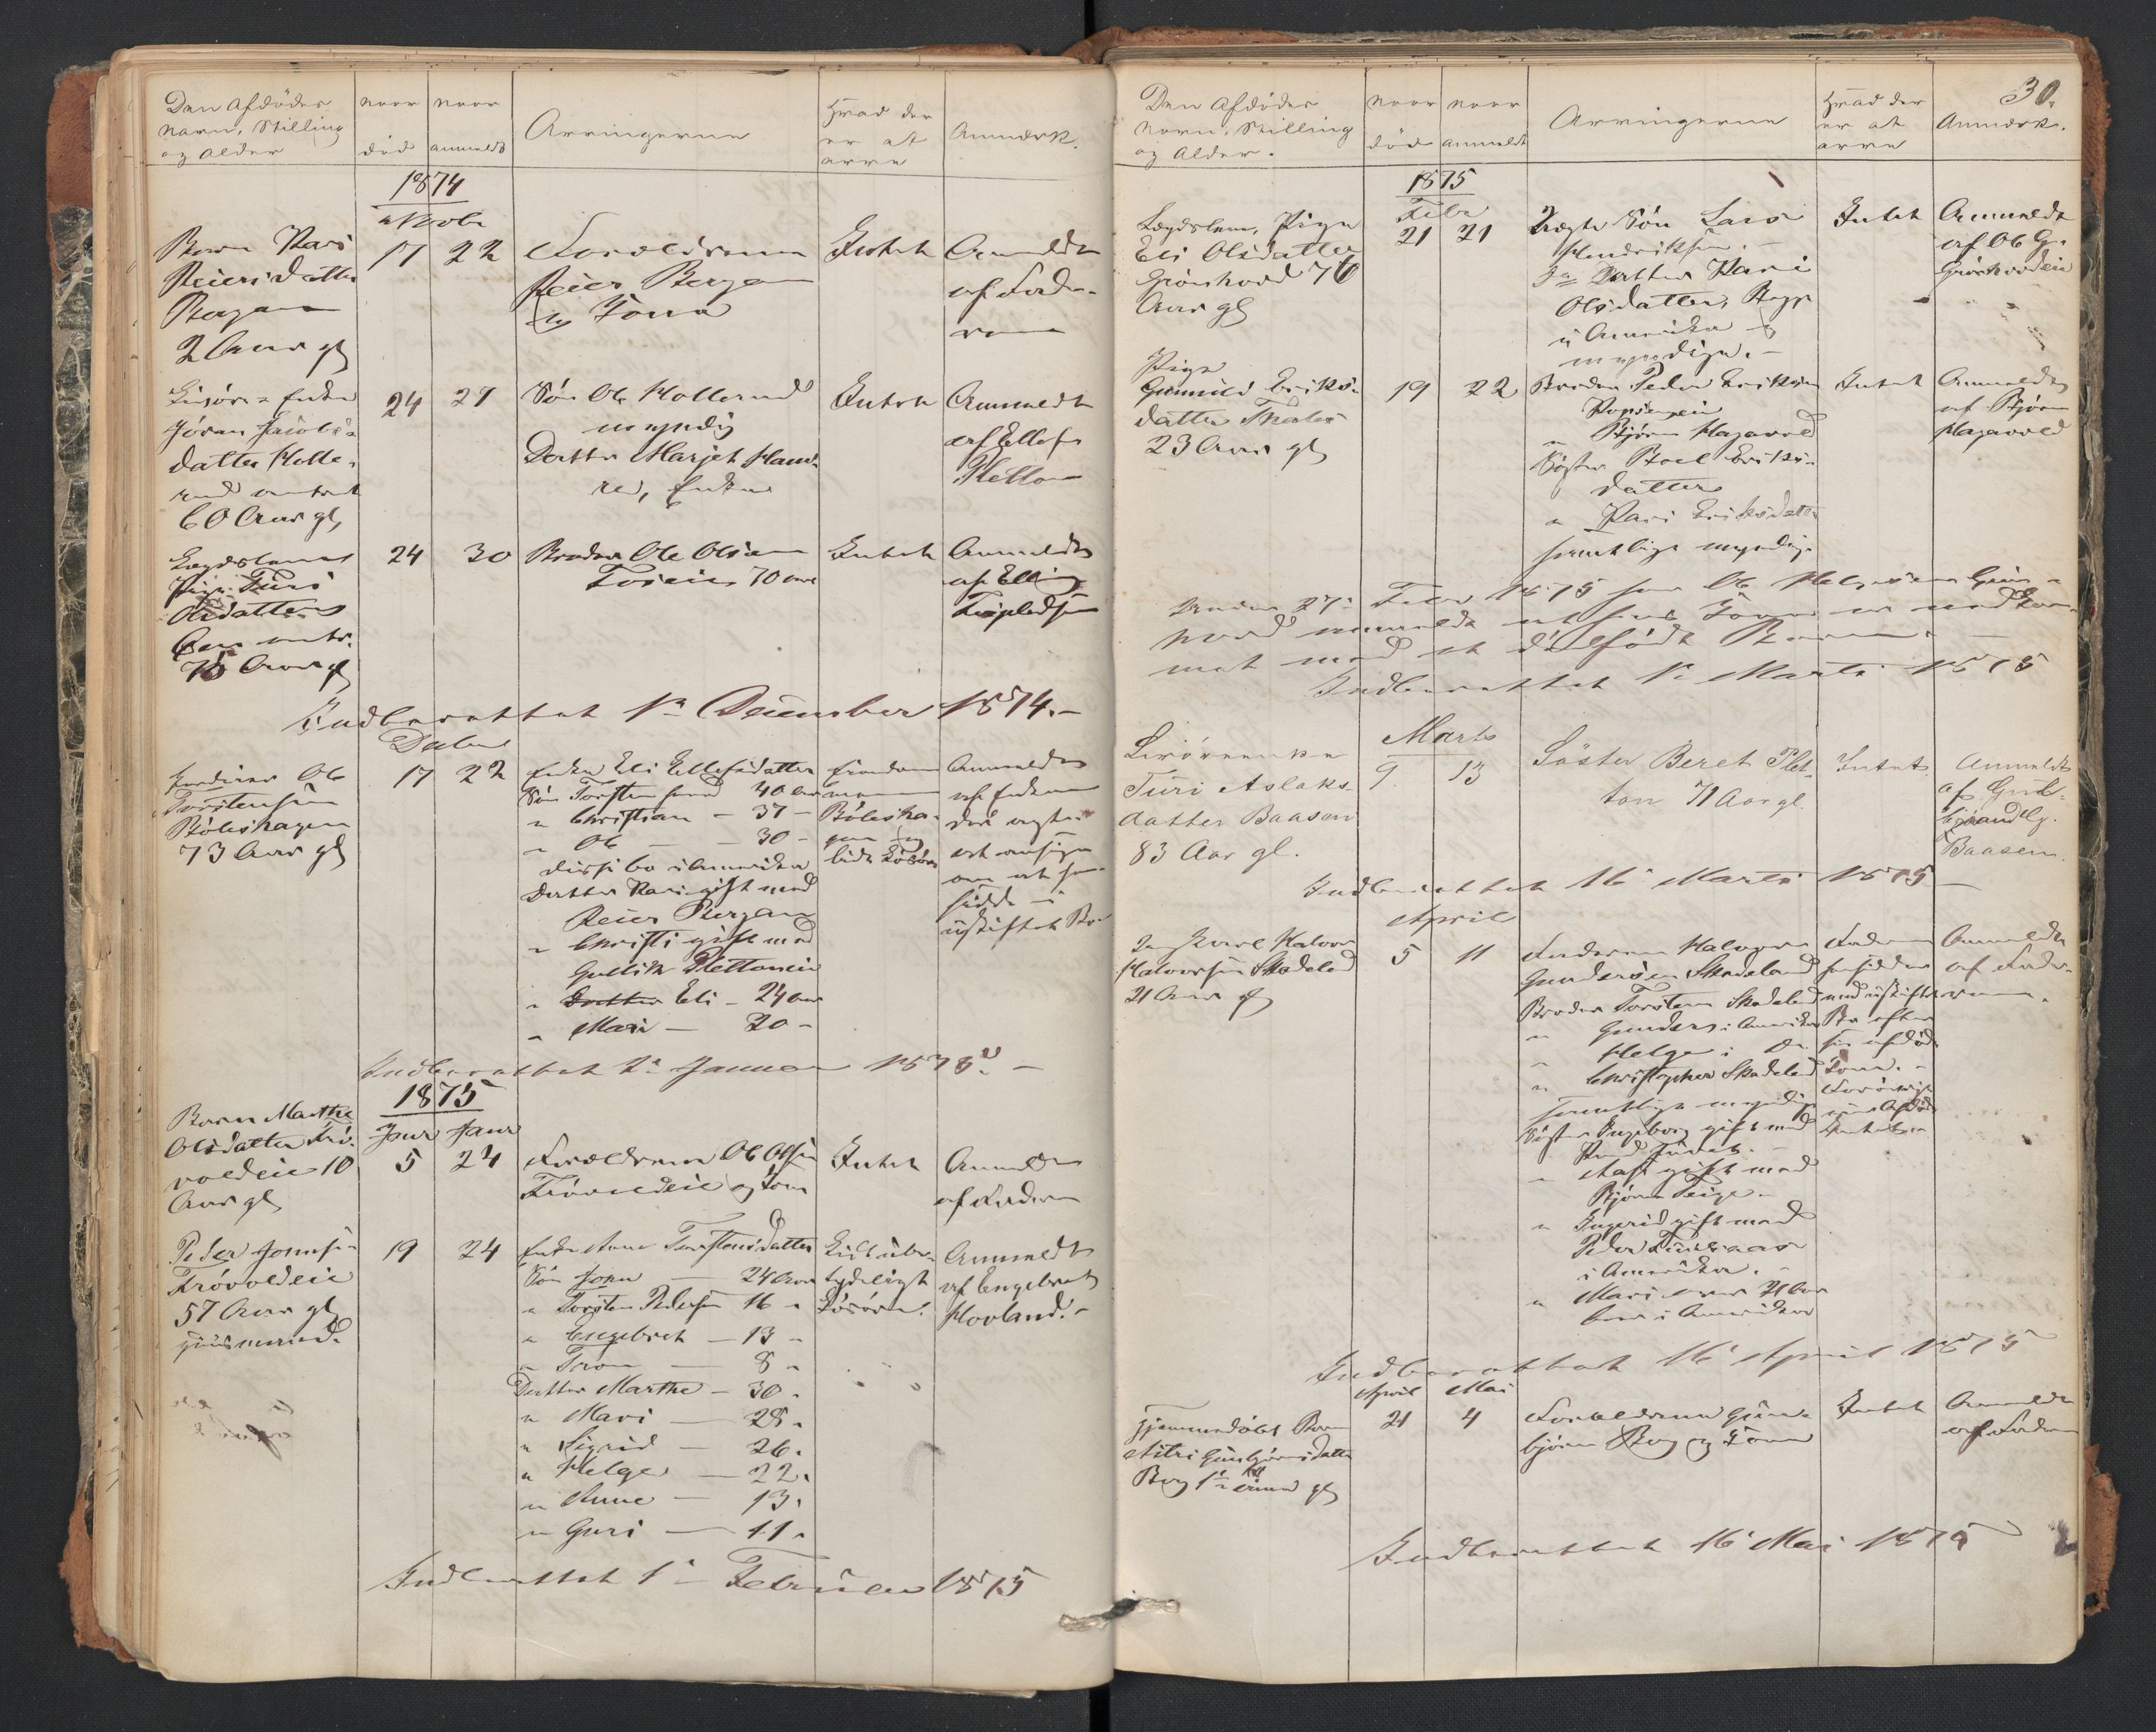 Den Afdødes
Navn, Stilling
og Alder
naar
død
naar
anmeldt
Arvingerne
Hvad der
er at
arve
Anmærk.
1874
Novbr
Barn Kari
Reiersdatter
Bergan
2 Aar gl
17
22
Forældrene
Reier Bergan
og Kone
Intet
Anmeldt
af Fade-
ren
Enke
Jøran Jacobs-
datter Holle-
rud omtrent
60 Aar gl
24
27
Søn Ole Hollerud
myndig
Datter Marjet
Enke
Intet
Anmeldt
af Ellef
Pletten
Lægdslem
Pige Turi
Olsdatter
omtr.
75 Aar gl
24
30
Broder Ole Olsen
70 Aar
Intet
Anmeldt
af Elling
Indberettet 1ste December 1874.-
Decbr
Ole
Torstensen
Bøleshagen
73 Aar gl
17
22
Enke Eli Ellefsdatter
Søn Torsten 40 Aar
" Christian - 37 -
" Ole - 30 -
disse bo i Amerika
Datter Kari gift med
Reier Bergan
" Christi gift med
Gullik Plettaneie
" Datter Eli - 24 Aar
" Mari - 20 -
Eiendom
Bølesha-
gen og
lidt Løsøre
Anmeldt
af Enken
der agter
at ansøge
om at hen-
sidde i
uskiftet Bo
Indberettet 2 Januar 1875. -
1875
Barn Marthe
Olsdatter Trø-
voldeie 10
Aar gl
Janr
5
Janr
24
Forældrene Ole Olsen
Trøvoldeie og Kone
Intet
Anmeldt
af Faderen
Peder Jonsen
Trøvoldeie
57 Aar gl
Huusmand.
19
24
Enke Anne Torstensdatter
Søn John - 24 Aar
" Torsten Pedersen 16 "
" Engebret - 13 -
" Tron - 8 -
Datter Marthe - 30 -
" Mari - 28 -
" Sigrid - 26 -
" Helge - 22 -
" Anne - 13 -
" Guri - 11 -
Lidt ube-
tydeligt
Løsøre.
Anmeldt
af Engebret
Hovland.-
Indberettet 1ste Februar 1875
30.
Den Afdødes
Navn, Stilling
og Alder.
naar
død
naar
anmeldt
Arvingerne
Hvad der
er at
arve
Anmærk.
1875
Febr
Lægdslem, Pige
Eli Olsdatter
Grønhovd 76
Aar gl
21
21
Uægte Søn Lars
Hendriksen. -
Do Datter Kari
Olsdatter, Begge
i Amerika og
myndige. -
Intet
Anmeldt
af Ole G.
Grønhovdeie
Pige
Gunnild Eriks-
datter
23 Aar gl
19
22
Broder Peder Eriksen
" Bjørn Hagavold
Søster Boel Eriks-
datter
" Kari Eriksdatter
samtlige myndige
Intet
Anmeldt
af Bjørn
Hagavold
Under 27de Febr 1875 har Ole Helgesen Grøn-
hovd anmeldt at hans Kone er nedkom-
met med et dødfødt Barn. -
Indberettet 1ste Marts 1875
Marts
Livøreenke
Turi Aslaks
datter Baasen
83 Aar gl.
9.
13
Søster Beret Plet-
ten 71 Aar gl.
Intet
Anmeldt
af Gul-
brand
Baasen.
Indberettet 16 Marts 1875 -
April
Halvor
Halvorsen Skadeland
21 Aar gl
5
11
Faderen Halvor
Gundersen Skadeland
Broder Torsten Skadeland
" Gunder i Amerika
" Helge i Do
" Christopher Skadeland
samtlige myndige
Søster Ingeborg gift med
" Aase gift med
Bjørn Teige -
" Ingerid gift med
Peder
i Amerika. -
" Mari Aar
boer i Amerika
Faderen
hensidder
med uskiftet
Bo efter
sin afdøde
Kone. -
Intet -
Anmeldt
af Fade-
ren.
Indberettet 16 April 1875
April
Mai
Hjemmedøbt Barn
Gunbjørnsdatter
Bøeg 1
21
4
Forældrene Gun-
bjørn Bøeg og Kone
Intet
Anmeldt
af Faderen
Indberettet 16 Mai 1875